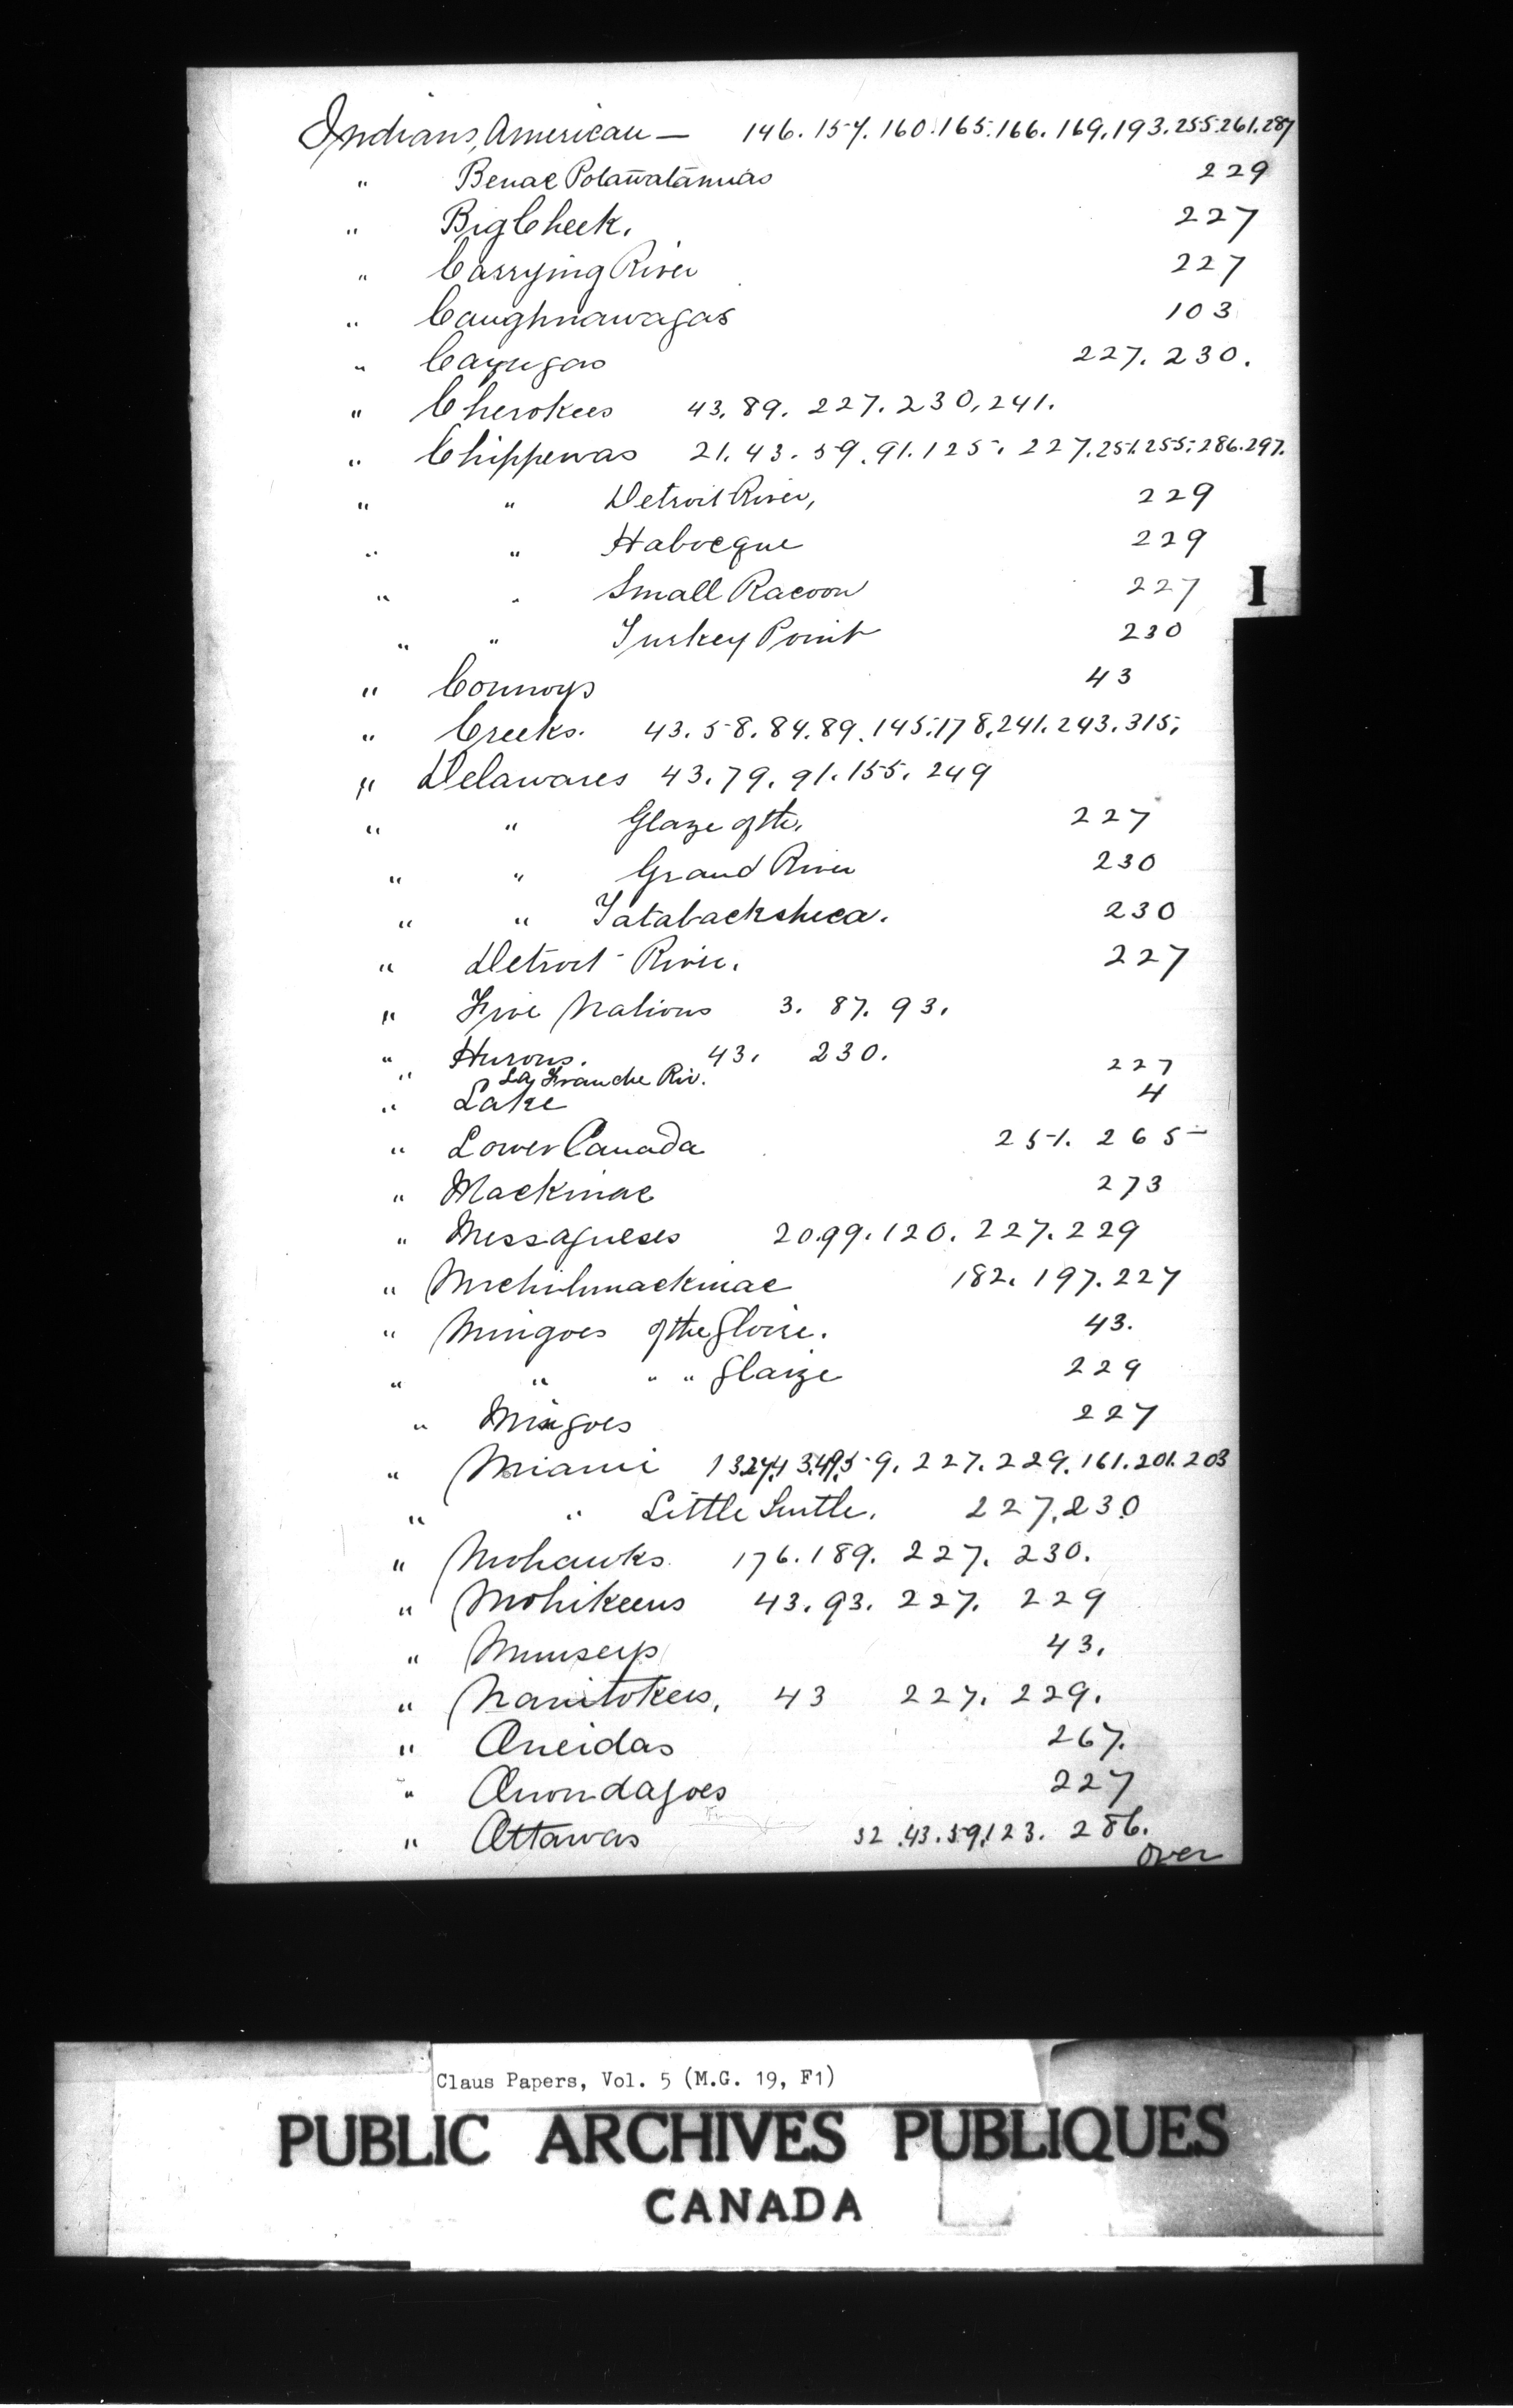 Indians, American — 146. 157. 160. 165. 166. 169. 193. 255. 261. 287
" Benac Potawatamias 229
" Big Cheek. 227
" Carrying River 227
" Caughnawagas 103
" Cayugas 227. 230.
" Cherokees 43. 89. 227. 230. 241.
" Chippewas 21. 43. 59. 91. 125. 227. 251. 255. 286. 297.
" " Detroit River, 229
" " Habocque 229
" " Small Racoon 227
" " Turkey Point 230
" Connoys 43
" Creeks. 43. 58. 84. 89. 145. 178. 241. 243. 315.
" Delawares 43. 79. 91. 155. 249
" " Glaze of the. 227
" " Grand River 230
" " Tatabackshica. 230
" Detroit River. 227
" Five Nations 3. 87. 93.
" Hurons. 43. 230.
" La Franche Riv. 227
" Lake 4
" Lower Canada 251. 265
" Mackinac 273
" Messagueses 20. 99. 120. 227. 229
" Michilimackinac 182. 197. 227
" Mingoes of the Gloire. 43.
" " " " Glaize 229
" Mingoes 227
" Miami 227. 229. 161. 201. 203
" " Little Turtle. 227. 230
" Mohawks 176. 189. 227. 230.
" Mohikeens 43. 93. 227. 229
" Munseys 43.
" Nanitokees, 43 227. 229.
" Oneidas 267.
" Onondagoes 227
" Ottawas 32. 43. 59. 123. 286.
over
I
Claus Papers, Vol. 5 (M.G. 19, F1)
PUBLIC ARCHIVES PUBLIQUES
CANADA